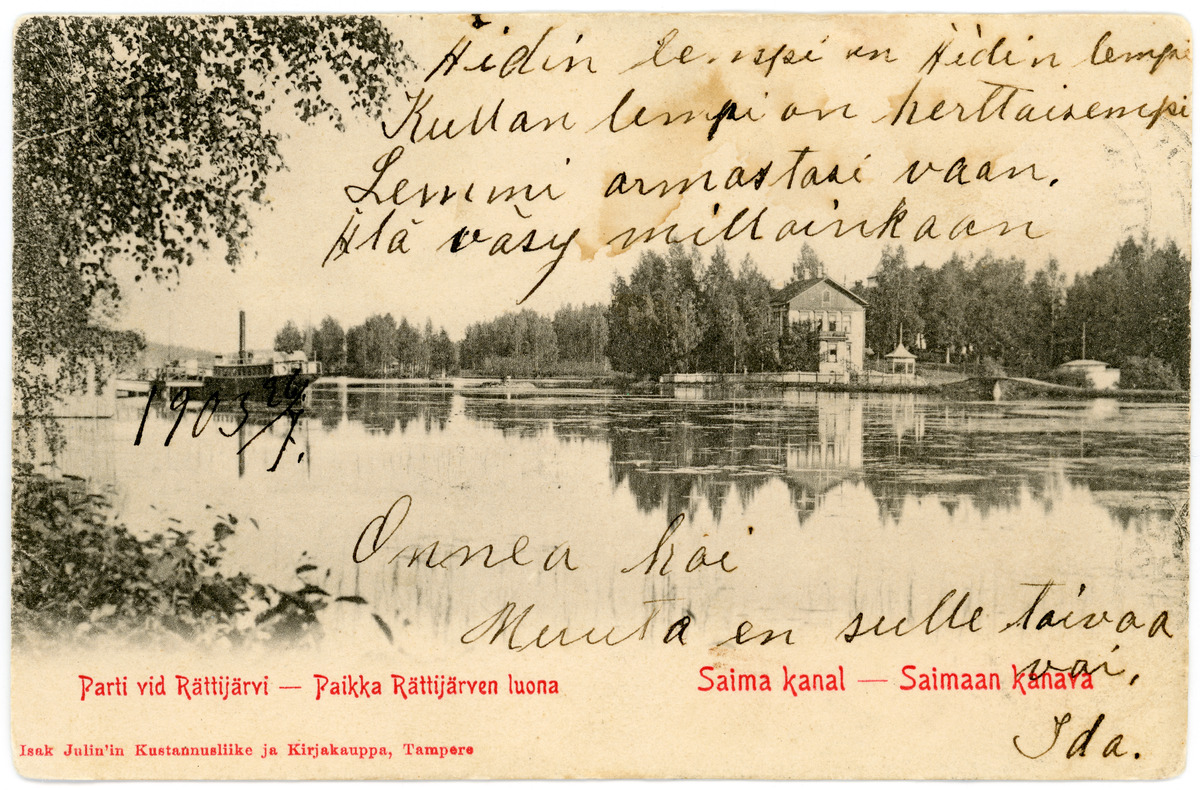 Äidin lempi on Äidin lempi
Kullan lempi on herttaisempi
Lemmi armastasi vaan.
Älä väsy milloinkaan
1903 26/7.
Onnea koi
Muuta en sulle toivoa
voi,
Ida.
Parti vid Rättijärvi — Paikka Rättijärven luona
Saima kanal — Saimaan kanava
Isak Julin'in Kustannusliike ja Kirjakauppa, Tampere